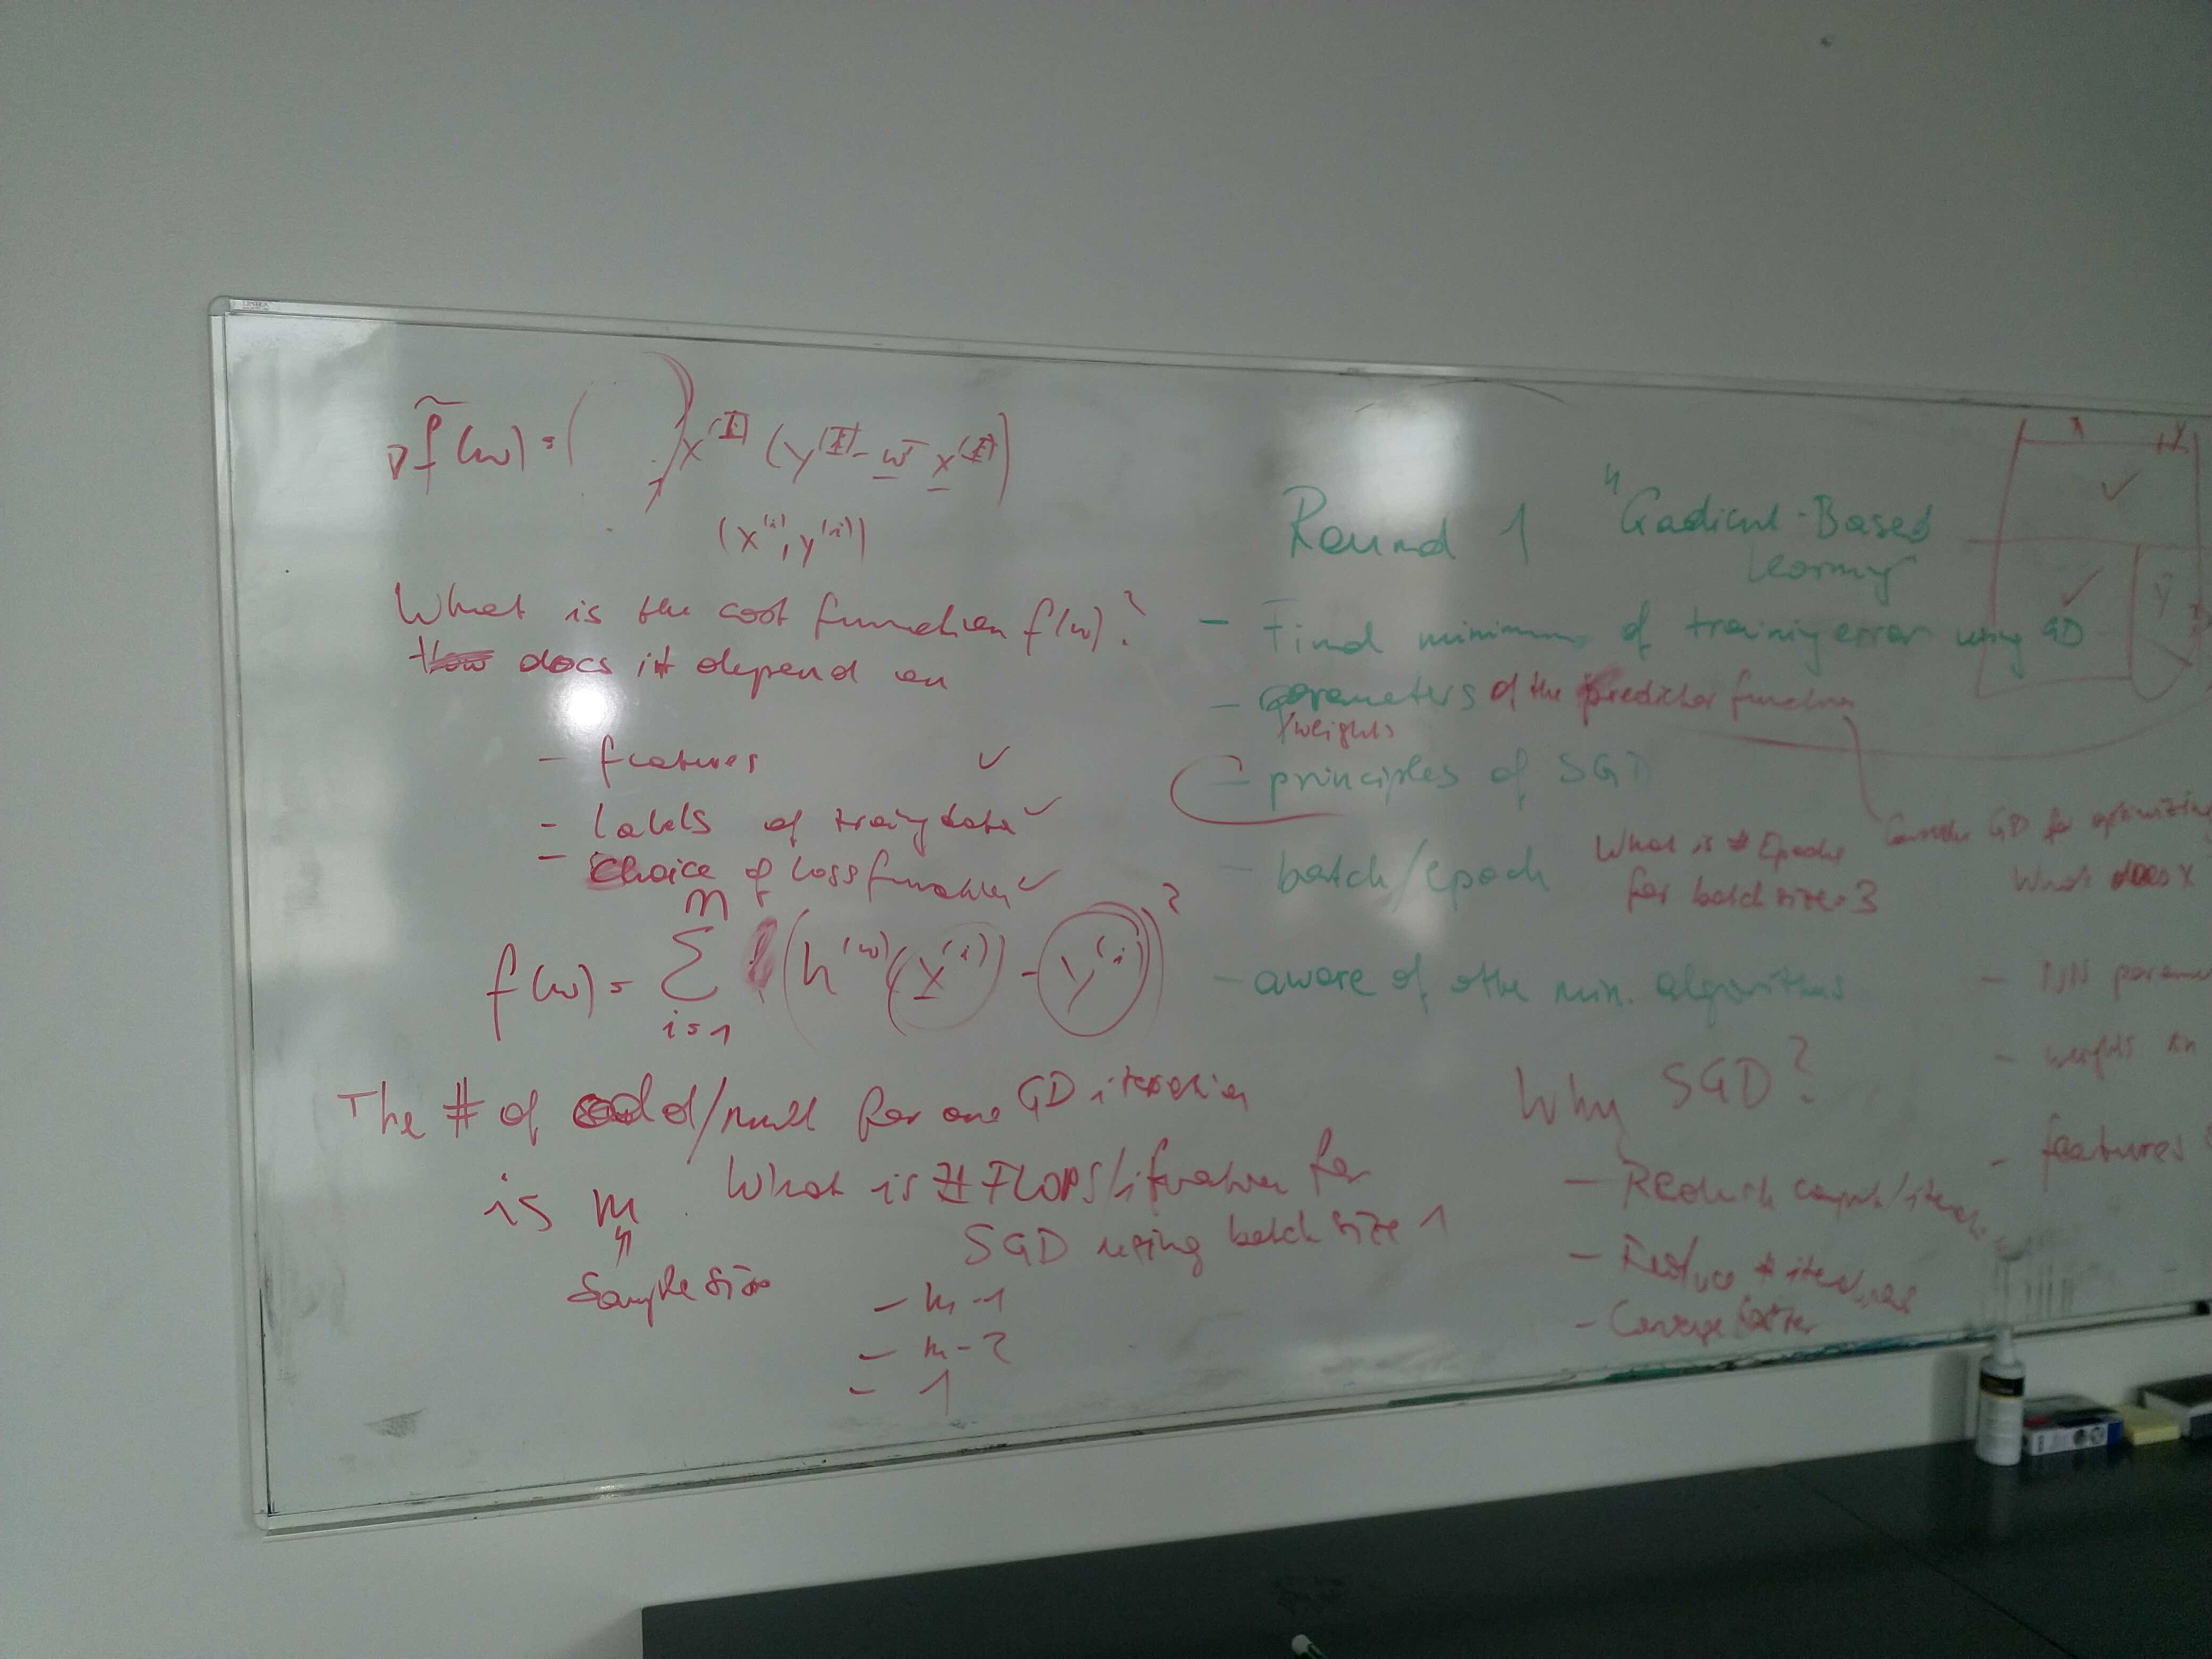 ∇f̃(w) = (   ) x^(I) (y^(I) - w^T x^(I))
(x^(i), y^(i))
What is the cost function f(w)?
How does it depend on
- features ✓
- labels of training data ✓
- Choice of loss function ✓
f(w) = Σ_{i=1}^{m} (h^(w)(x^(i)) - y^(i))²
The # of add/mult for one GD iteration
is m
Sample size
What is # FLOPS/iteration for
SGD using batch size 1
- m-1
- m-2
- 1
Round 1 "Gradient-Based
Learning
- Find minimum of training error using GD
- parameters of the predictor function
/weights
- principles of SGD
- batch/epoch
What is # Epochs
for batch size = 3
Consider GD for optimizing
What does x
- aware of othe min. algorithms
Why SGD?
- Reduce comput/iterat.
- Reduce # iterations
- Converge faster
- NN parame
- weights in
- features